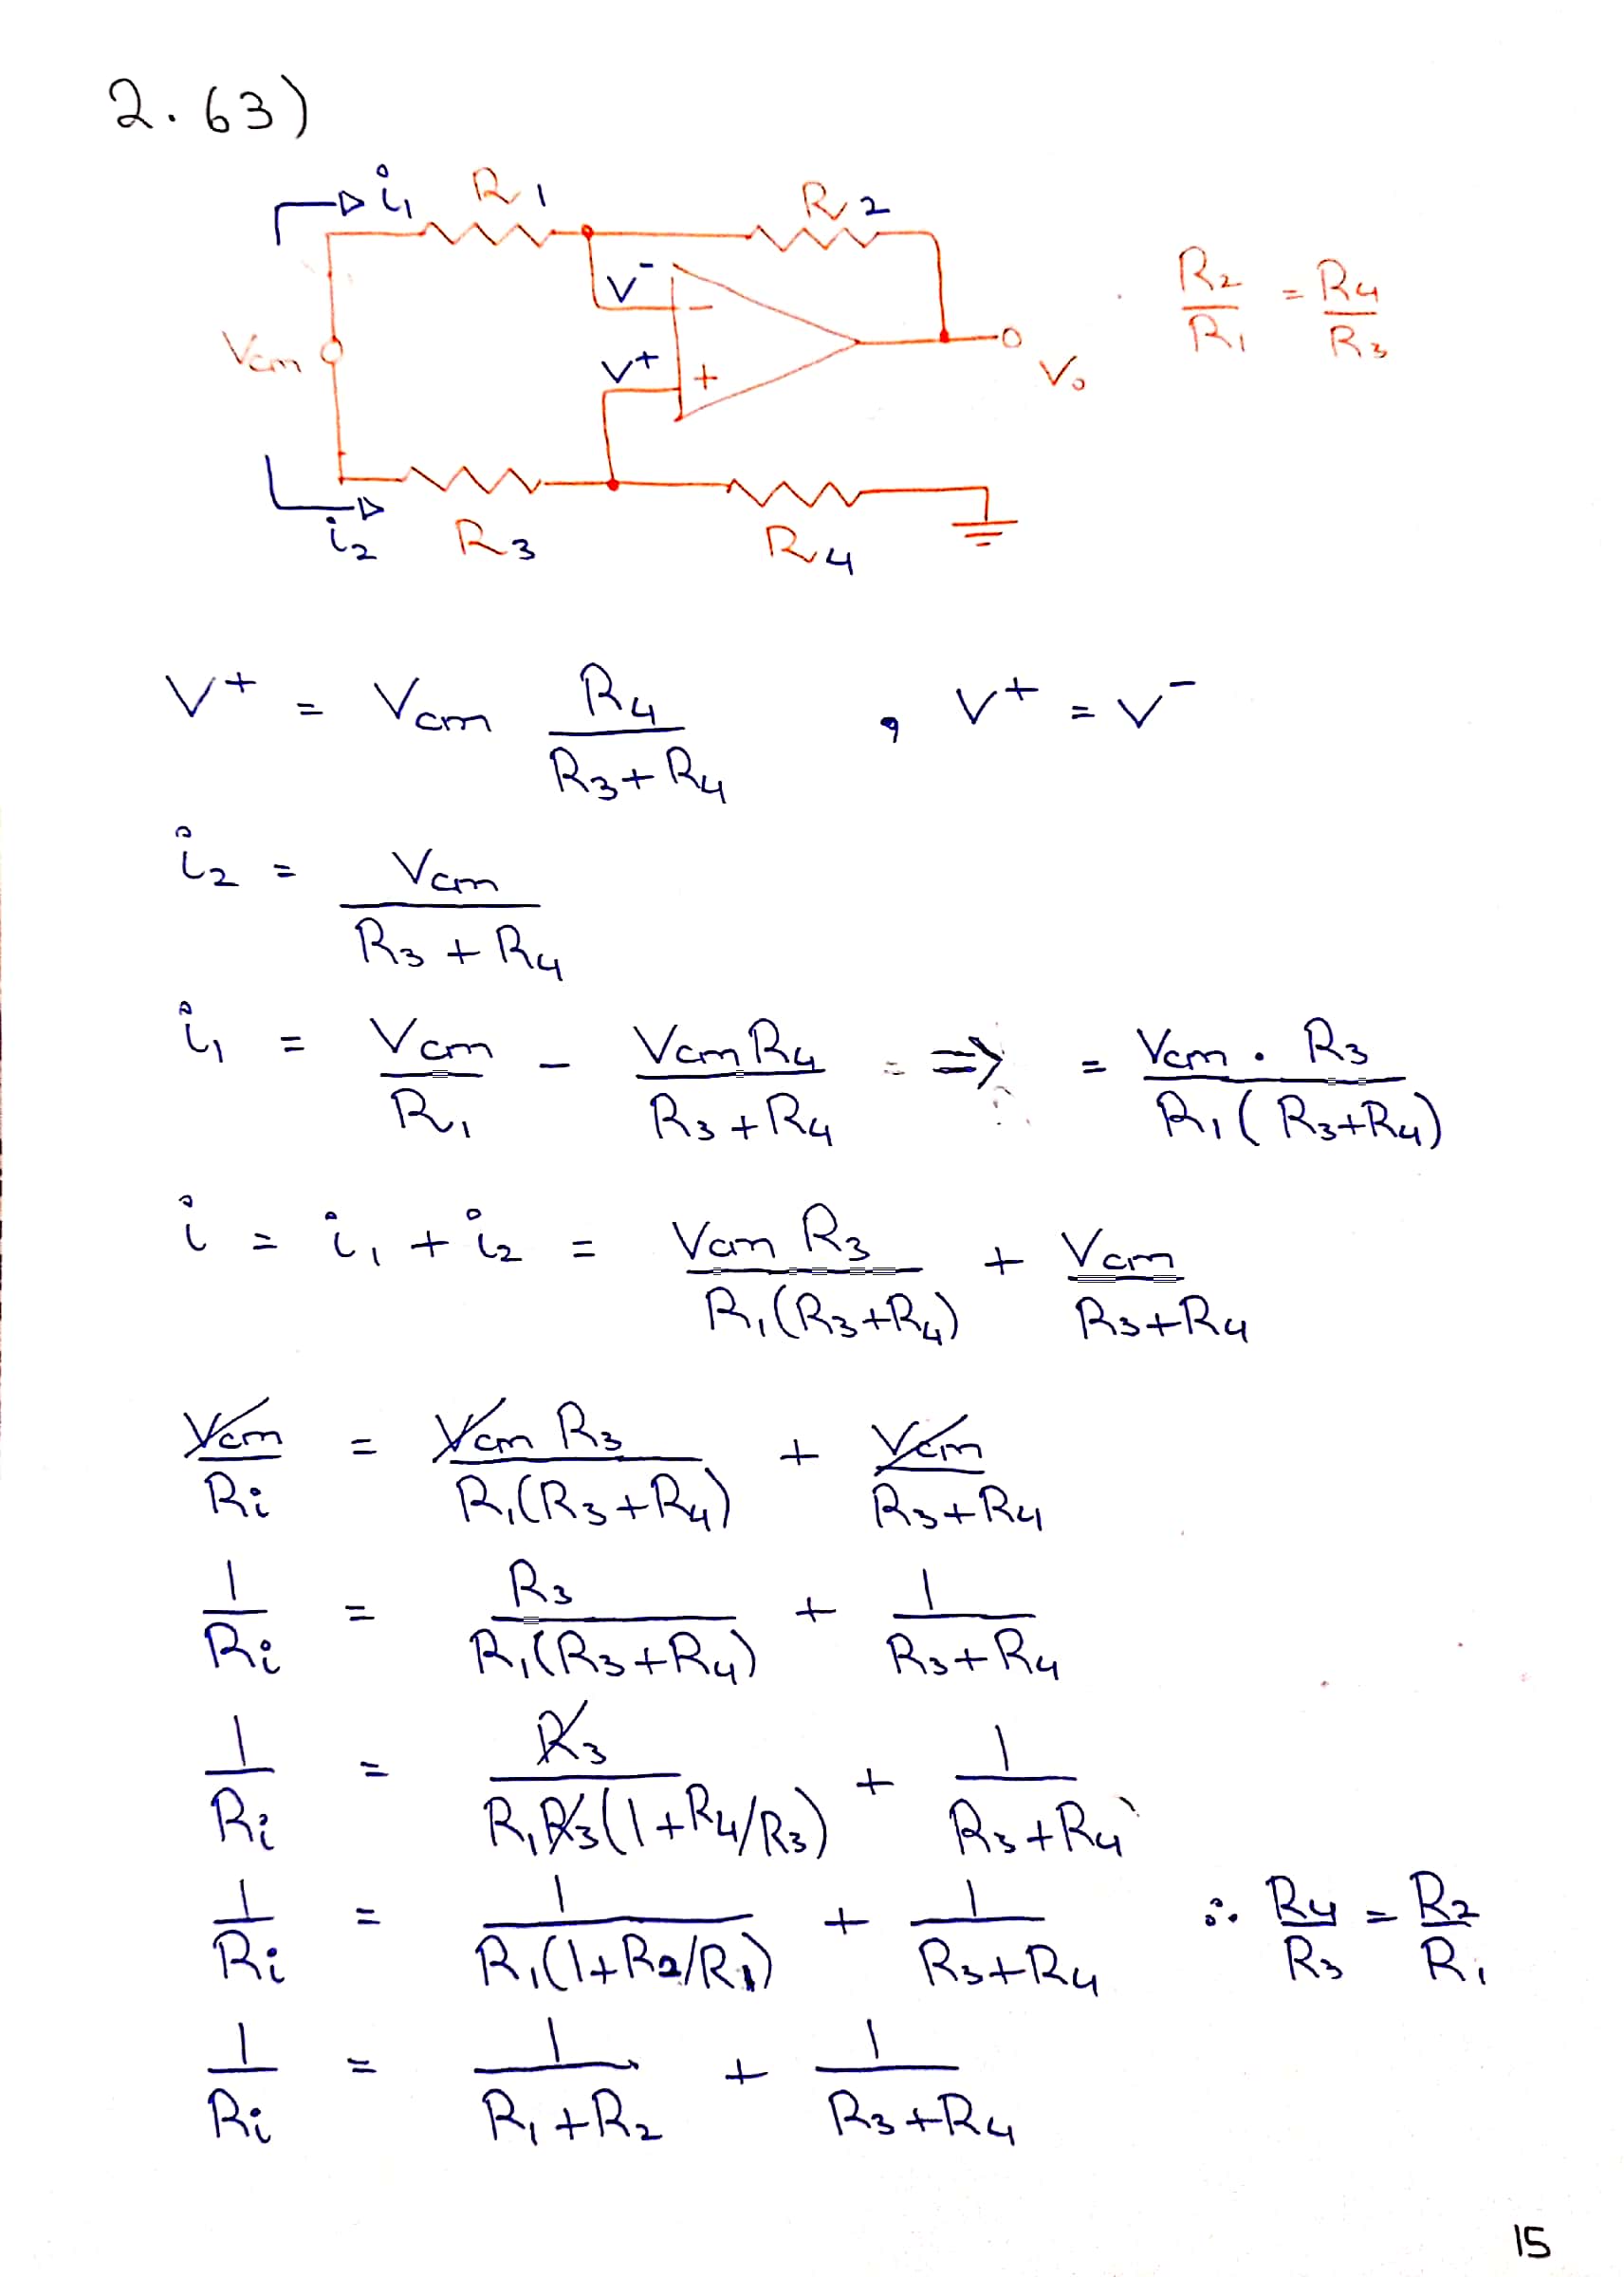 2.63)
i1 R1 R2
V- -
R2/R1 = R4/R3
Vcm V+ + Vo
i2 R3 R4
V+ = Vcm R4/(R3+R4) , V+ = V-
i2 = Vcm/(R3+R4)
i1 = Vcm/R1 - VcmR4/(R3+R4) = => = Vcm . R3/(R1(R3+R4))
i = i1 + i2 = Vcm R3/(R1(R3+R4)) + Vcm/(R3+R4)
Vcm/Ri = Vcm R3/(R1(R3+R4)) + Vcm/(R3+R4)
1/Ri = R3/(R1(R3+R4)) + 1/(R3+R4)
1/Ri = R3/(R1R3(1+R4/R3)) + 1/(R3+R4)
1/Ri = 1/(R1(1+R2/R1)) + 1/(R3+R4) ∴ R4/R3 = R2/R1
1/Ri = 1/(R1+R2) + 1/(R3+R4)
15